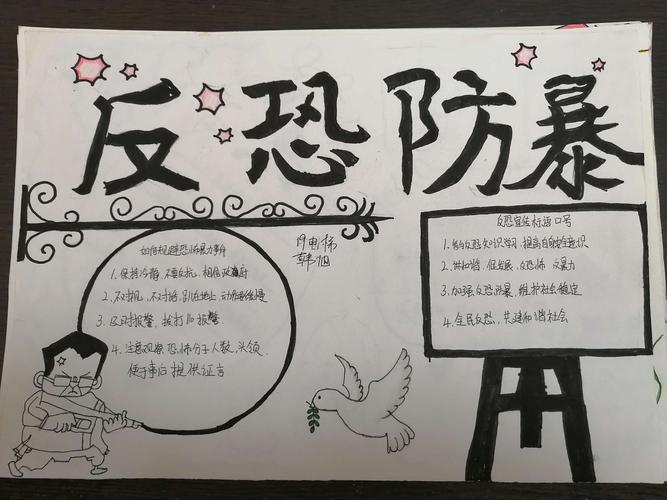 反恐防暴
如何规避恐怖暴力事件
1. 保持冷静,不要反抗,相信政府
2. 不对视,不对话,趴在地上,动作要缓慢
3. 及时报警,拨打110报警.
4. 注意观察恐怖分子人数,头领,
便于事后提供证言
19电梯
韩旭
反恐宣传标语口号
反恐知识学习,提高自防意识
2. 共和谐,促发展,反恐怖
3. 加强反恐防暴,维护社会稳定
4. 全民反恐,共建和谐社会